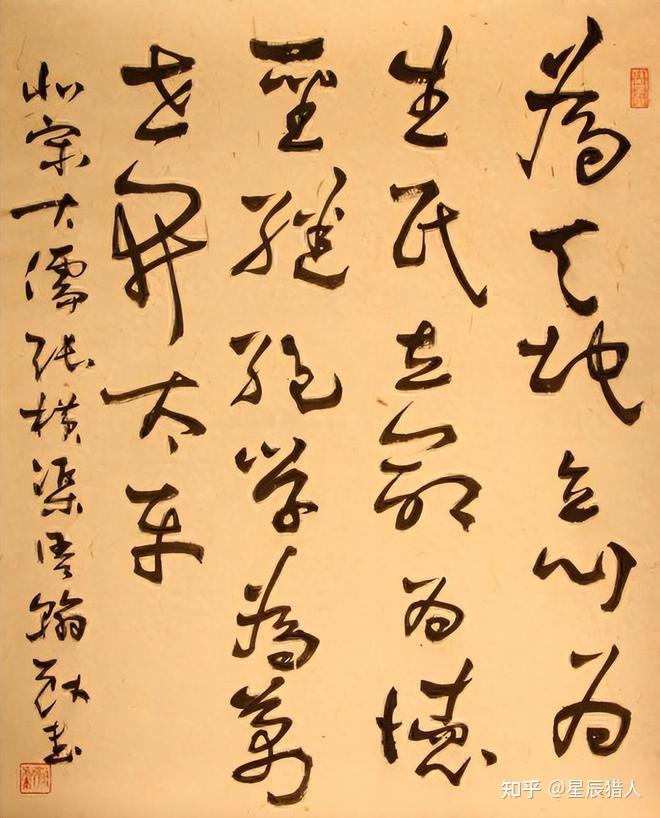 為天地立心为
生民立命为
聖繼絕學為萬
世開太平
北宋大儒張橫渠語翰書
知乎 @星辰猎人